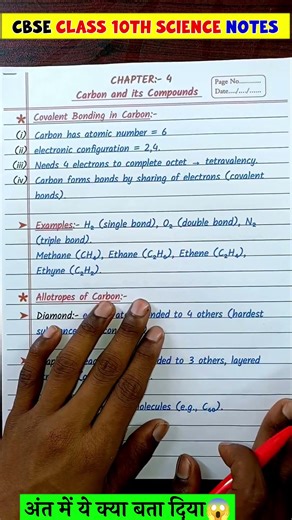 CBSE CLASS 10TH SCIENCE NOTES
CHAPTER:- 4
Carbon and its Compounds
Page No............
Date...../...../......
* Covalent Bonding in Carbon:-
(i) Carbon has atomic number = 6
(ii) electronic configuration = 2,4.
(iii) Needs 4 electrons to complete octet → tetravalency.
(iv) Carbon forms bonds by sharing of electrons (covalent
bonds).
➤ Examples:- H₂ (single bond), O₂ (double bond), N₂
(triple bond).
Methane (CH₄), Ethane (C₂H₆), Ethene (C₂H₄),
Ethyne (C₂H₂).
* Allotropes of Carbon:-
➤ Diamond:- to 4 others (hardest
to 3 others, layered
molecules (e.g., C₆₀).
अंत में ये क्या बता दिया😱